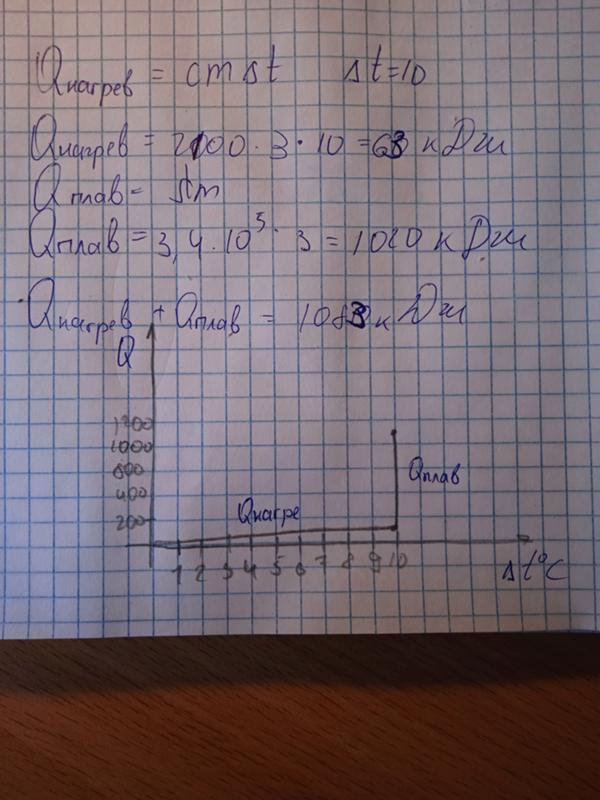 Qнагрев = cmΔt Δt=10
Qнагрев = 2100 · 3 · 10 = 63 кДж
Qплав = λm
Qплав = 3,4 · 10⁵ · 3 = 1020 кДж
Qнагрев + Qплав = 1083 кДж
Q
1200
1000
800
400
200
Qплав
Qнагре
1 2 3 4 5 6 7 8 9 10
Δt°C